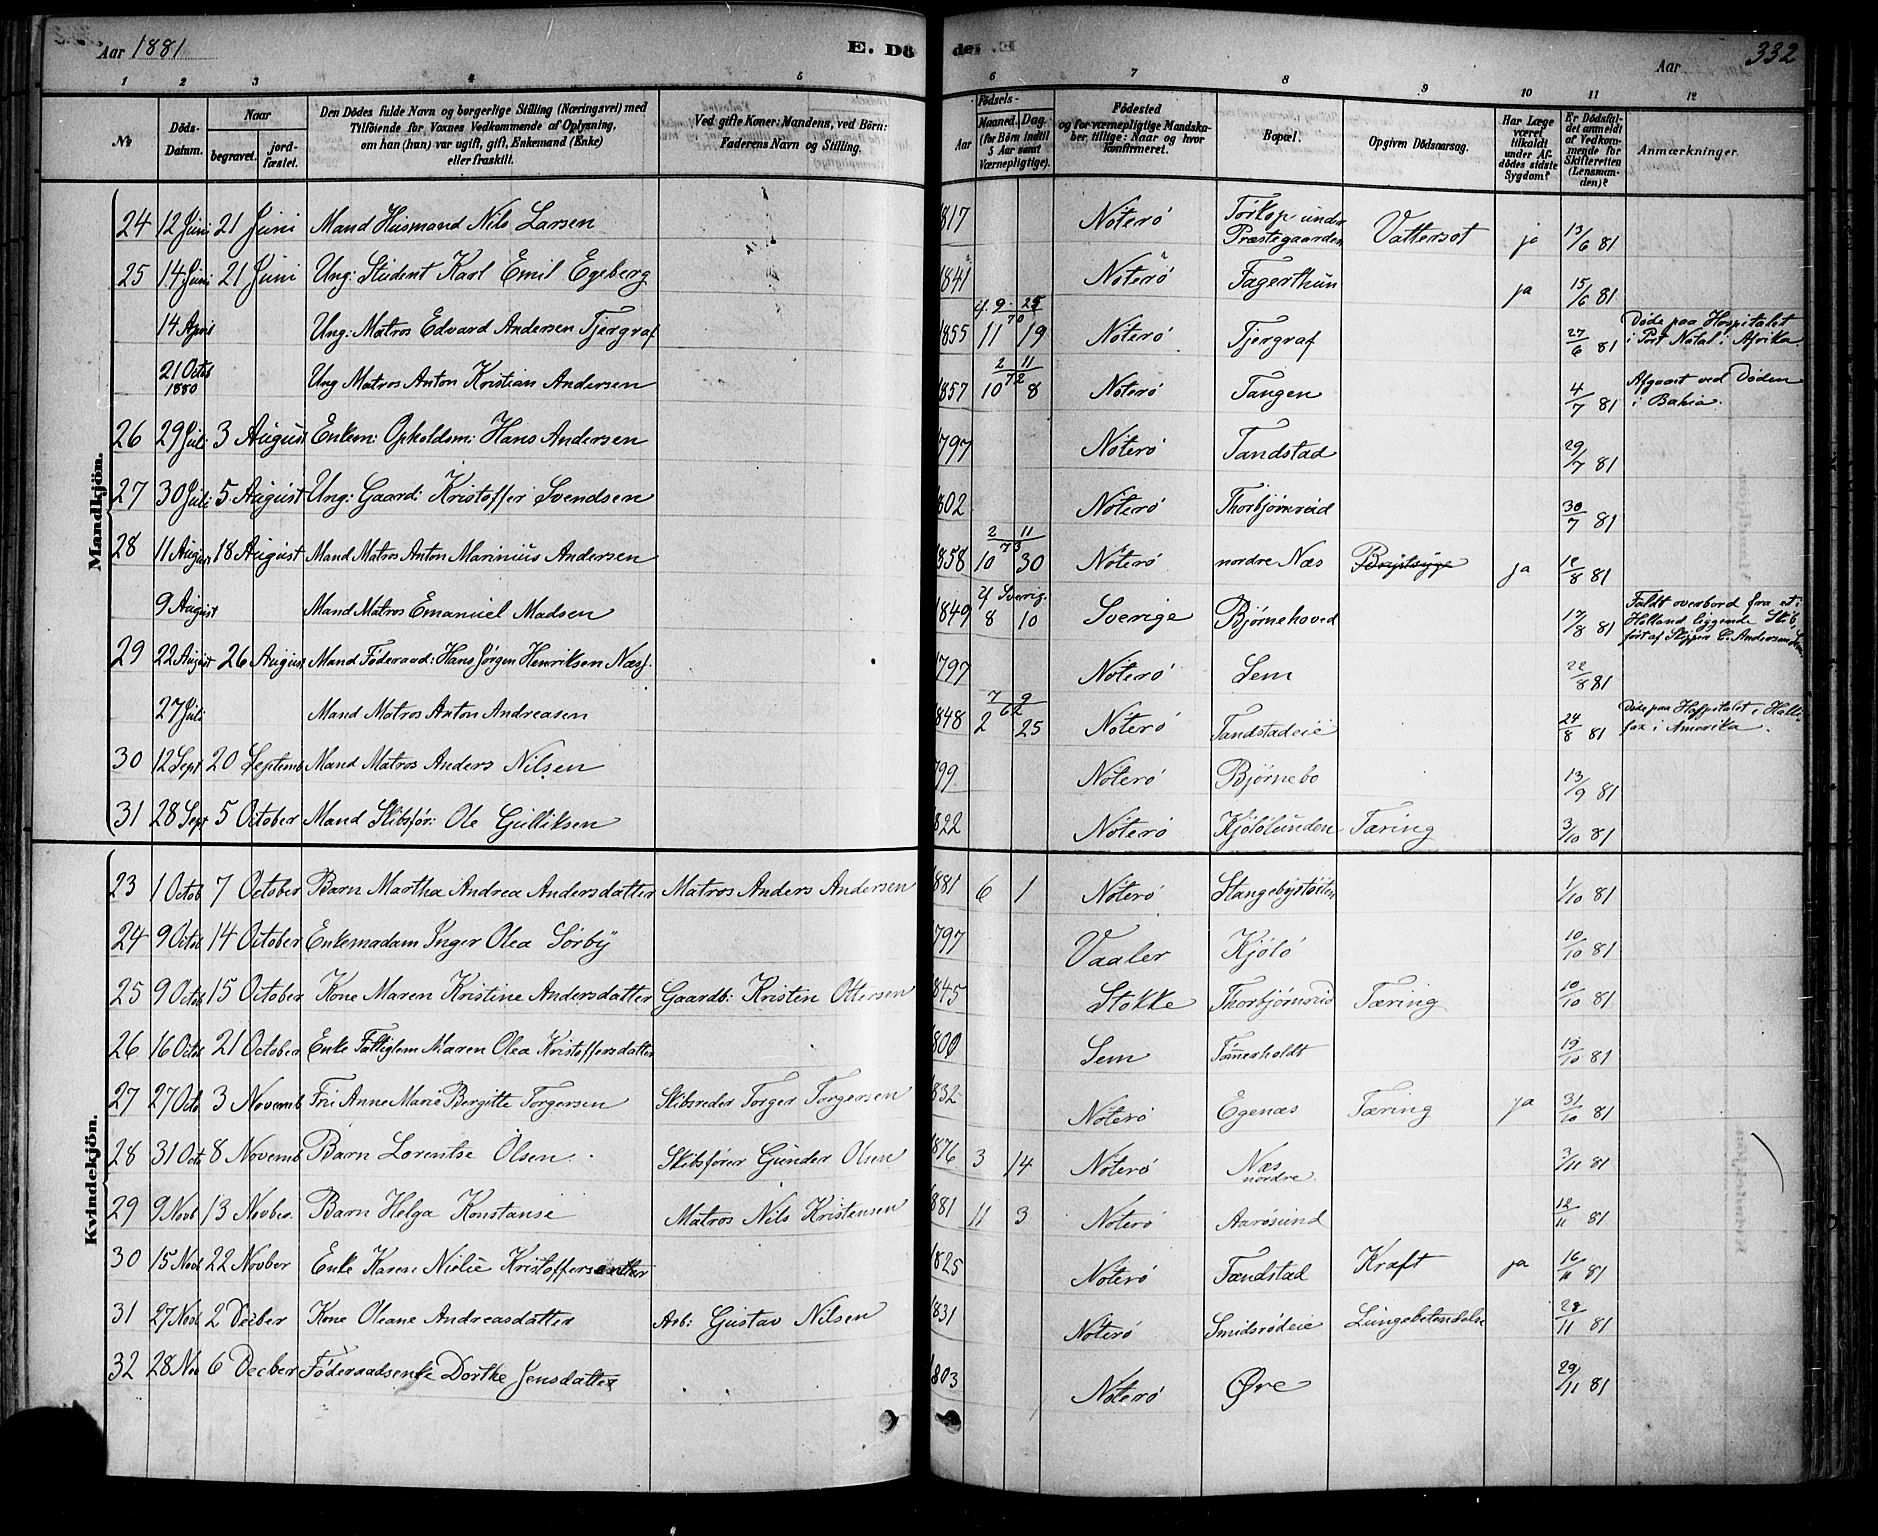 Aar 1881
E. Dö
de. E
Aar
332
1 2 3 4 5 6 7 8 9 10 11 12
No
Döds-Datum.
Naar
begravet.
jordfæstet.
Den Dödes fulde Navn og borgerlige Stilling (Næringsvei) med
Tilföiende for Voxnes Vedkommende af Oplysning,
om han (hun) var ugift, gift, Enkemand (Enke)
eller fraskilt.
Ved gifte Koner: Mandens, ved Börn:
Faderens Navn og Stilling.
Födsels-
Aar
Maaned. Dag.
(for Börn indtil 5 Aar samt Værnepligtige).
Födested
og for værnepligtige Mandskaber tillige: Naar og hvor konfirmeret.
Bopæl.
Opgiven Dödsaarsag.
Har Læge været tilkaldt under Afdödes sidste Sygdom?
Er Dödsfaldet anmeldt af Vedkommende for Skifteretten (Lensmanden)?
Anmærkninger.
Mandkjön.
24 12 Juni 21 Juni Mand Husmand Nils Larsen 1817 Nøterø Torkop under Præstegaarden Vattersot ja 13/6 81
25 14 Juni 21 Juni Ung: Student Karl Emil Egeberg 1841 Nøterø Fagerthun ja 15/6 81
14 April Ung: Matros Edvard Andersen Tjergraf 1855 4. 9. 25/70 11 19 Nøterø Tjergraf 27/6 81 Døde paa Hospitalet i Port Natal i Afrika.
21 Octb 1880 Ung Matros Anton Kristian Andersen 1857 2 11/72 10 8 Nøterø Tangen 4/7 81 Afgaaet ved Døden i Bahia.
26 29 Juli 3 August Enkem: Opholdsm: Hans Andersen 1797 Nøterø Tandstad 29/7 81
27 30 Juli 5 August Ung: Gaard: Kristoffer Svendsen 1802 Nøterø Thorbjørnsrød 30/7 81
28 11 August 18 August Mand Matros Anton Marinius Andersen 1858 2 11/73 10 30 Nøterø nordre Næs Brystsyge ja 12/8 81
9 August Mand Matros Emanuel Madsen 1849 i Sverig. 8 10 Sverige Bjørnehoved 17/8 81 Faldt overbord fra et i Holland liggende Skib, ført af Skipper C. Andersen
29 22 August 26 August Mand Føderaad: Hans Jørgen Henriksen Næs. 1797 Nøterø Sem 22/8 81
27 Juli Mand Matros Anton Andreasen 1848 7 9/62 2 25 Nøterø Tandstadeie 24/8 81 Døde paa Hospitalet i Halifax i Amerika.
30 12 Sept 20 Septemb Mand Matros Anders Nilsen 1799 Nøterø Bjørnebo 13/9 81
31 28 Sept 5 October Mand Skibsfør: Ole Gulliksen 1822 Nøterø Kjølølunden Tæring 3/10 81
Kvindekjön.
23 1 Octob 7 October Barn Martha Andrea Andersdatter Matros Anders Andersen 1881 6 1 Nøterø Stangebystøiten 1/10 81
24 9 Octob 14 October Enkemadam Inger Olea Sørby 1797 Vaaler Kjølø 10/10 81
25 9 Octob 15 October Kone Maren Kristine Andersdatter Gaardb: Kristen Ottersen 1845 Stokke Thorbjørnsrød Tæring 10/10 81
26 16 Octob 21 October Enke Fattiglem Maren Olea Kristoffersdatter 1800 Sem Tømmerholdt 19/10 81
27 27 Octo 3 Novemb Fru Anne Marie Bergitte Torgersen Skibsreder Torger Torgersen 1832 Nøterø Egenæs Tæring ja 31/10 81
28 31 Octo 8 Novemb Barn Lorentse Olsen Skibsfører Gunder Olsen 1876 3 14 Nøterø Næs nordre. 3/11 81
29 9 Novb 13 Novber. Barn Helga Konstanse Matros Nils Kristensen 1881 11 3 Nøterø Aarøsund 12/11 81
30 15 Nov 22 Novber Enke Karen Nielie Kristoffersdatter 1825 Nøterø Tandstad Kræft ja 16/11 81
31 27 Novb 2 Decber Kone Oleane Andreasdatter Arb: Gustav Nilsen 1831 Nøterø Smidsrødeie Lungebetændelse 28/11 81
32 28 Nov 6 Decber Føderaadsenke Dorthe Jensdatter 1803 Nøterø Øre 29/11 81